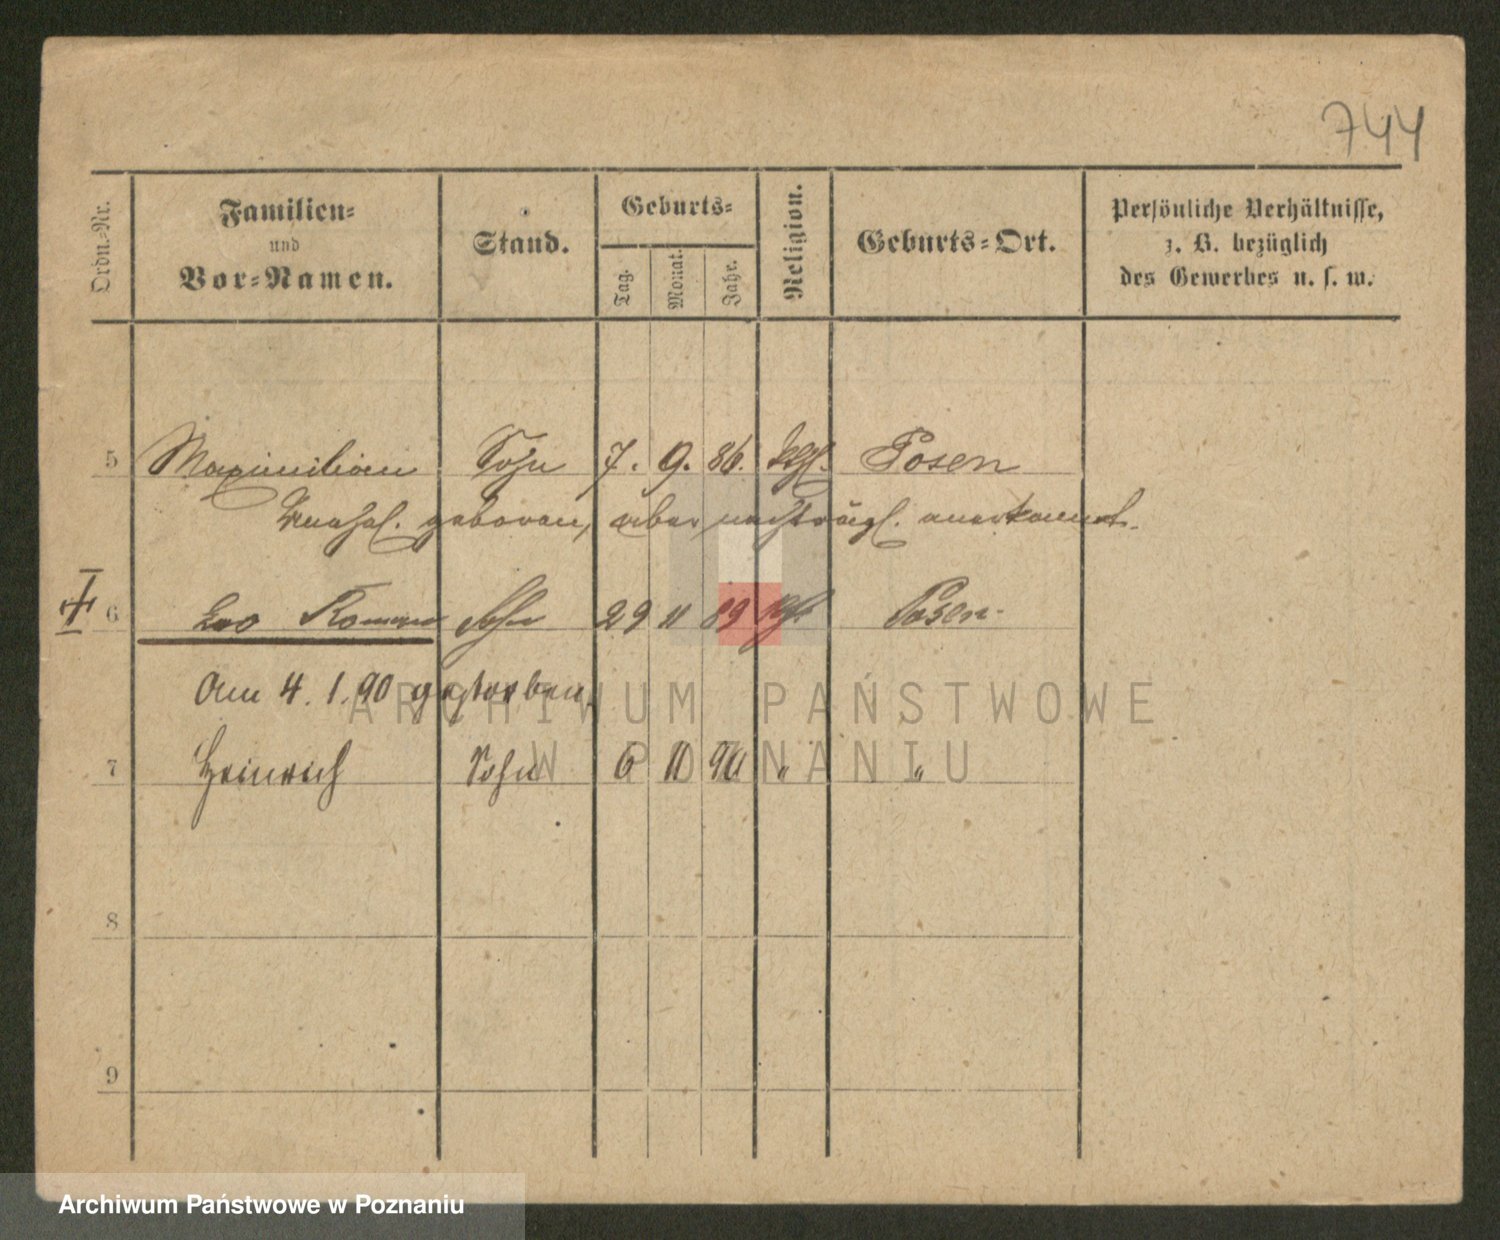 744
Ordn.-Nr.
Familien-
und
Vor-Namen.
Stand.
Geburts-
Tag.
Monat.
Jahr.
Religion.
Geburts-Ort.
Persönliche Verhältnisse,
z. B. bezüglich
des Gewerbes u. s. w.
5 Maximilian Sohn 7. 9. 86. kthl. Posen
geboren, aber nachträgl. anerkannt.
6 Leo Roman Sohn 29 11 89 kth Posen.
Am 4. 1. 90 gestorben.
ARCHIWUM PAŃSTWOWE
7 Heinrich Sohn 6 10 90 " "
W POZNANIU
8
9
Archiwum Państwowe w Poznaniu